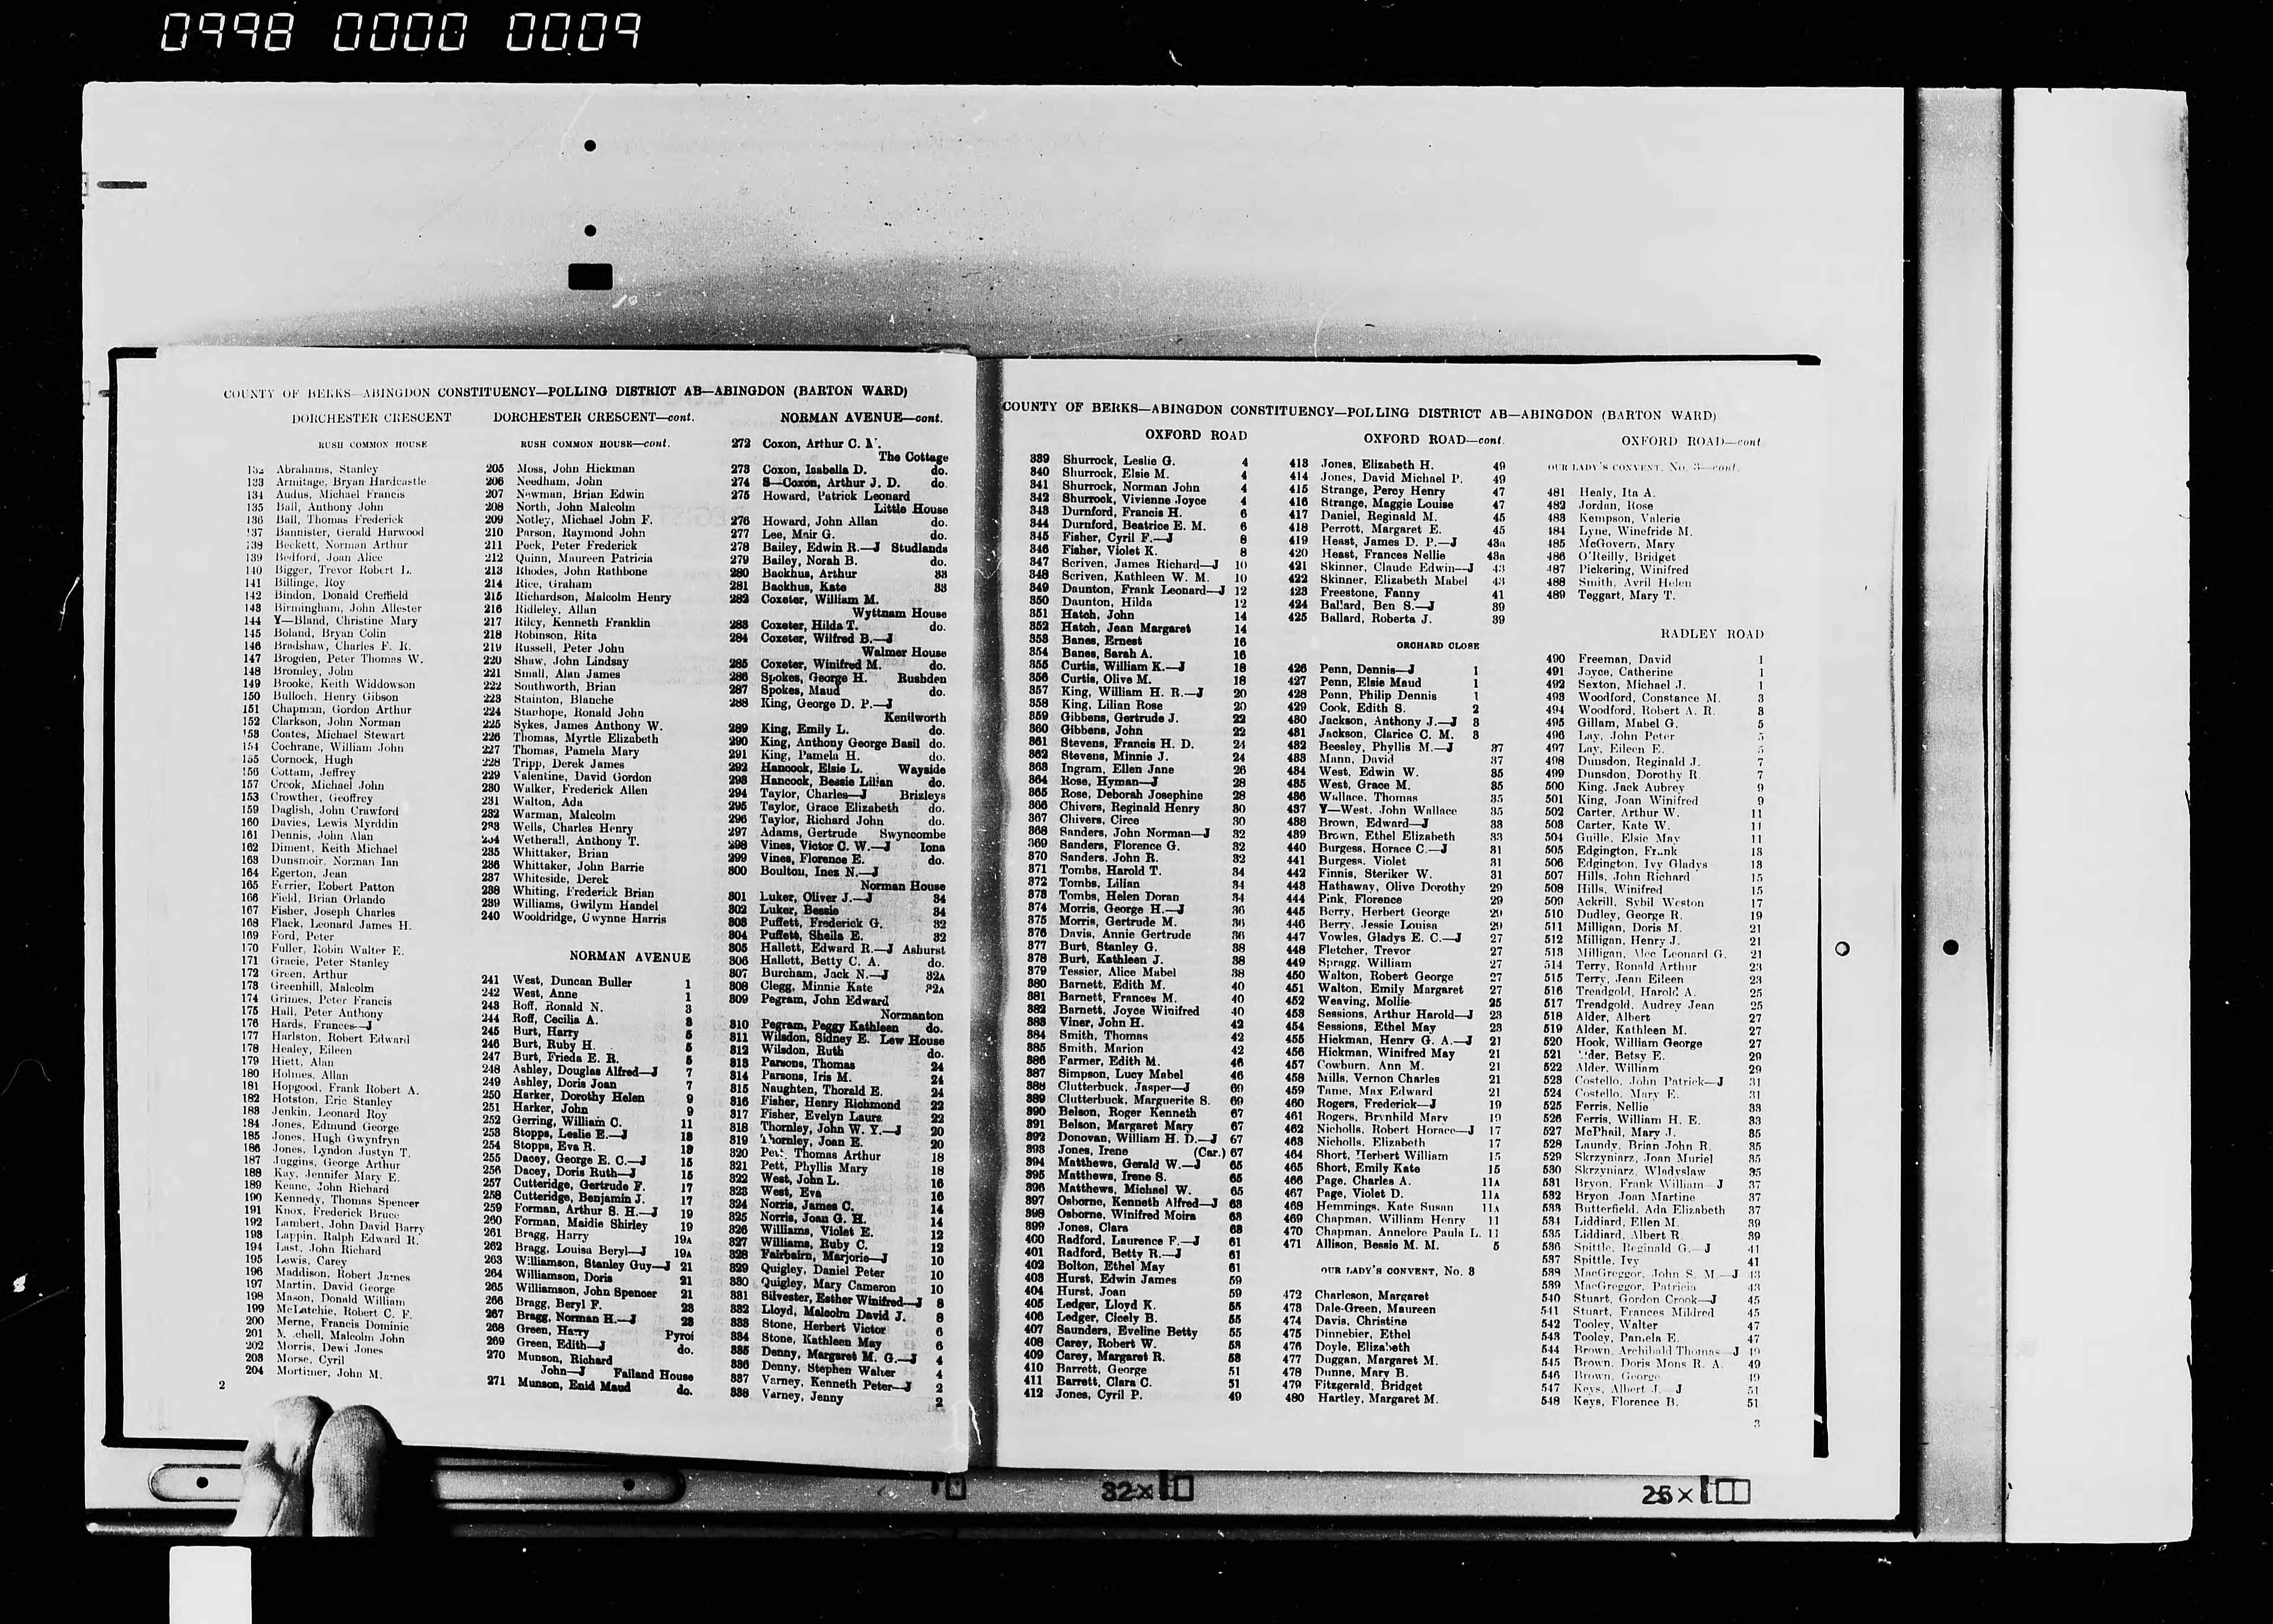 0998 0000 0009
COUNTY OF BERKS—ABINGDON CONSTITUENCY—POLLING DISTRICT AB—ABINGDON (BARTON WARD)
DORCHESTER CRESCENT
RUSH COMMON HOUSE
132 Abrahams, Stanley
133 Armitage, Bryan Hardcastle
134 Audus, Michael Francis
135 Ball, Anthony John
136 Ball, Thomas Frederick
137 Bannister, Gerald Harwood
138 Beckett, Norman Arthur
139 Bedford, Joan Alice
140 Bigger, Trevor Robert L.
141 Billinge, Roy
142 Bindon, Donald Creffield
143 Birmingham, John Allester
144 Y—Bland, Christine Mary
145 Boland, Bryan Colin
146 Bradshaw, Charles F. R.
147 Brogden, Peter Thomas W.
148 Bromley, John
149 Brooke, Keith Widdowson
150 Bulloch, Henry Gibson
151 Chapman, Gordon Arthur
152 Clarkson, John Norman
153 Coates, Michael Stewart
154 Cochrane, William John
155 Cornock, Hugh
156 Cottam, Jeffrey
157 Crook, Michael John
153 Crowther, Geoffrey
159 Daglish, John Crawford
160 Davies, Lewis Myrddin
161 Dennis, John Alan
162 Diment, Keith Michael
163 Dunsmoir, Norman Ian
164 Egerton, Jean
165 Ferrier, Robert Patton
166 Field, Brian Orlando
167 Fisher, Joseph Charles
168 Flack, Leonard James H.
169 Ford, Peter
170 Fuller, Robin Walter E.
171 Gracie, Peter Stanley
172 Green, Arthur
173 Greenhill, Malcolm
174 Grimes, Peter Francis
175 Hall, Peter Anthony
176 Hards, Frances—J
177 Harlston, Robert Edward
178 Healey, Eileen
179 Hiett, Alan
180 Holmes, Allan
181 Hopgood, Frank Robert A.
182 Hotston, Eric Stanley
183 Jenkin, Leonard Roy
184 Jones, Edmund George
185 Jones, Hugh Gwynfryn
186 Jones, Lyndon Justyn T.
187 Juggins, George Arthur
188 Kay, Jennifer Mary E.
189 Keane, John Richard
190 Kennedy, Thomas Spencer
191 Knox, Frederick Bruce
192 Lambert, John David Barry
193 Lappin, Ralph Edward R.
194 Last, John Richard
195 Lewis, Carey
196 Maddison, Robert James
197 Martin, David George
198 Mason, Donald William
199 McLatchie, Robert C. F.
200 Merne, Francis Dominic
201 chell, Malcolm John
202 Morris, Dewi Jones
203 Morse, Cyril
204 Mortimer, John M.
2
DORCHESTER CRESCENT—cont.
RUSH COMMON HOUSE—cont.
205 Moss, John Hickman
206 Needham, John
207 Newman, Brian Edwin
208 North, John Malcolm
209 Notley, Michael John F.
210 Parson, Raymond John
211 Peck, Peter Frederick
212 Quinn, Maureen Patricia
213 Rhodes, John Rathbone
214 Rice, Graham
215 Richardson, Malcolm Henry
216 Ridleley, Allan
217 Riley, Kenneth Franklin
218 Robinson, Rita
219 Russell, Peter John
220 Shaw, John Lindsay
221 Small, Alan James
222 Southworth, Brian
223 Stainton, Blanche
224 Stanhope, Ronald John
225 Sykes, James Anthony W.
226 Thomas, Myrtle Elizabeth
227 Thomas, Pamela Mary
228 Tripp, Derek James
229 Valentine, David Gordon
230 Walker, Frederick Allen
231 Walton, Ada
232 Warman, Malcolm
233 Wells, Charles Henry
234 Wetherall, Anthony T.
235 Whittaker, Brian
236 Whittaker, John Barrie
237 Whiteside, Derek
238 Whiting, Frederick Brian
239 Williams, Gwilym Handel
240 Wooldridge, Gwynne Harris
NORMAN AVENUE
241 West, Duncan Buller 1
242 West, Anne 1
243 Roff, Ronald N. 3
244 Roff, Cecilia A. 3
245 Burt, Harry 5
246 Burt, Ruby H. 5
247 Burt, Frieda E. R. 5
248 Ashley, Douglas Alfred—J 7
249 Ashley, Doris Joan 7
250 Harker, Dorothy Helen 9
251 Harker, John 9
252 Gerring, William C. 11
253 Stopps, Leslie E.—J 13
254 Stopps, Eva R. 13
255 Dacey, George E. C.—J 15
256 Dacey, Doris Ruth—J 15
257 Cutteridge, Gertrude F. 17
258 Cutteridge, Benjamin J. 17
259 Forman, Arthur S. H.—J 19
260 Forman, Maidie Shirley 19
261 Bragg, Harry 19A
262 Bragg, Louisa Beryl—J 19A
263 Williamson, Stanley Guy—J 21
264 Williamson, Doris 21
265 Williamson, John Spencer 21
266 Bragg, Beryl F. 23
267 Bragg, Norman H.—J 23
268 Green, Harry Pyrof
269 Green, Edith—J do.
270 Munson, Richard
John—J Failand House
271 Munson, Enid Maud do.
NORMAN AVENUE—cont.
272 Coxon, Arthur C.
The Cottage
273 Coxon, Isabella D. do.
274 S—Coxon, Arthur J. D. do.
275 Howard, Patrick Leonard
Little House
276 Howard, John Allan do.
277 Lee, Mair G. do.
278 Bailey, Edwin R.—J Studlands
279 Bailey, Norah B. do.
280 Backhus, Arthur 33
281 Backhus, Kate 33
282 Coxeter, William M.
Wyttnam House
283 Coxeter, Hilda T. do.
284 Coxeter, Wilfred B.—J
Walmer House
285 Coxeter, Winifred M. do.
286 Spokes, George H. Rushden
287 Spokes, Maud do.
288 King, George D. P.—J
Kenilworth
289 King, Emily L. do.
290 King, Anthony George Basil do.
291 King, Pamela H. do.
292 Hancock, Elsie L. Wayside
293 Hancock, Bessie Lilian do.
294 Taylor, Charles—J Brizleys
295 Taylor, Grace Elizabeth do.
296 Taylor, Richard John do.
297 Adams, Gertrude Swyncombe
298 Vines, Victor C. W.—J Iona
299 Vines, Florence E. do.
300 Boulton, Inez N.—J
Norman House
301 Luker, Oliver J.—J 34
302 Luker, Bessie 34
303 Puffett, Frederick G. 32
304 Puffett, Sheila E. 32
305 Hallett, Edward R.—J Ashurst
306 Hallett, Betty C. A. do.
307 Burcham, Jack N.—J 32A
308 Clegg, Minnie Kate 32A
309 Pegram, John Edward
Normanton
310 Pegram, Peggy Kathleen do.
311 Wilsdon, Sidney E. Lew House
312 Wilsdon, Ruth do.
313 Parsons, Thomas 24
314 Parsons, Iris M. 24
315 Naughten, Thorald E. 24
316 Fisher, Henry Richmond 22
317 Fisher, Evelyn Laura 22
318 Thornley, John W. Y.—J 20
319 Thornley, Joan E. 20
320 Pett, Thomas Arthur 18
321 Pett, Phyllis Mary 18
322 West, John L. 16
323 West, Eva 16
324 Norris, James C. 14
325 Norris, Joan G. H. 14
326 Williams, Violet E. 12
327 Williams, Ruby C. 12
328 Fairbairn, Marjorie—J 10
329 Quigley, Daniel Peter 10
330 Quigley, Mary Cameron 10
331 Silvester, Esther Winifred—J 8
332 Lloyd, Malcolm David J. 8
333 Stone, Herbert Victor 6
334 Stone, Kathleen May 6
335 Denny, Margaret M. G.—J 4
336 Denny, Stephen Walter 4
337 Varney, Kenneth Peter—J 2
338 Varney, Jenny 2
COUNTY OF BERKS—ABINGDON CONSTITUENCY—POLLING DISTRICT AB—ABINGDON (BARTON WARD)
OXFORD ROAD
339 Shurrock, Leslie G. 4
340 Shurrock, Elsie M. 4
341 Shurrock, Norman John 4
342 Shurrock, Vivienne Joyce 4
343 Durnford, Francis H. 6
344 Durnford, Beatrice E. M. 6
345 Fisher, Cyril F.—J 8
346 Fisher, Violet K. 8
347 Scriven, James Richard—J 10
348 Scriven, Kathleen W. M. 10
349 Daunton, Frank Leonard—J 12
350 Daunton, Hilda 12
351 Hatch, John 14
352 Hatch, Jean Margaret 14
353 Banes, Ernest 16
354 Banes, Sarah A. 16
355 Curtis, William K.—J 18
356 Curtis, Olive M. 18
357 King, William H. R.—J 20
358 King, Lilian Rose 20
359 Gibbens, Gertrude J. 22
360 Gibbens, John 22
361 Stevens, Francis H. D. 24
362 Stevens, Minnie J. 24
363 Ingram, Ellen Jane 26
364 Rose, Hyman—J 28
365 Rose, Deborah Josephine 28
366 Chivers, Reginald Henry 30
367 Chivers, Circe 30
368 Sanders, John Norman—J 32
369 Sanders, Florence G. 32
370 Sanders, John R. 32
371 Tombs, Harold T. 34
372 Tombs, Lilian 34
373 Tombs, Helen Doran 34
374 Morris, George H.—J 36
375 Morris, Gertrude M. 36
376 Davis, Annie Gertrude 36
377 Burt, Stanley G. 38
378 Burt, Kathleen J. 38
379 Tessier, Alice Mabel 38
380 Barnett, Edith M. 40
381 Barnett, Frances M. 40
382 Barnett, Joyce Winifred 40
383 Viner, John H. 42
384 Smith, Thomas 42
385 Smith, Marion 42
386 Farmer, Edith M. 46
387 Simpson, Lucy Mabel 46
388 Clutterbuck, Jasper—J 69
389 Clutterbuck, Marguerite S. 69
390 Belson, Roger Kenneth 67
391 Belson, Margaret Mary 67
392 Donovan, William H. D.—J 67
393 Jones, Irene (Car.) 67
394 Matthews, Gerald W.—J 65
395 Matthews, Irene S. 65
396 Matthews, Michael W. 65
397 Osborne, Kenneth Alfred—J 63
398 Osborne, Winifred Moira 63
399 Jones, Clara 63
400 Radford, Laurence F.—J 61
401 Radford, Betty R.—J 61
402 Bolton, Ethel May 61
403 Hurst, Edwin James 59
404 Hurst, Joan 59
405 Ledger, Lloyd K. 55
406 Ledger, Cicely B. 55
407 Saunders, Eveline Betty 55
408 Carey, Robert W. 53
409 Carey, Margaret R. 53
410 Barrett, George 51
411 Barrett, Clara C. 51
412 Jones, Cyril P. 49
OXFORD ROAD—cont.
413 Jones, Elizabeth H. 49
414 Jones, David Michael P. 49
415 Strange, Percy Henry 47
416 Strange, Maggie Louise 47
417 Daniel, Reginald M. 45
418 Perrott, Margaret E. 45
419 Heast, James D. P.—J 43a
420 Heast, Frances Nellie 43a
421 Skinner, Claude Edwin—J 43
422 Skinner, Elizabeth Mabel 43
423 Freestone, Fanny 41
424 Ballard, Ben S.—J 39
425 Ballard, Roberta J. 39
ORCHARD CLOSE
426 Penn, Dennis—J 1
427 Penn, Elsie Maud 1
428 Penn, Philip Dennis 1
429 Cook, Edith S. 2
430 Jackson, Anthony J.—J 3
431 Jackson, Clarice C. M. 3
432 Beesley, Phyllis M.—J 37
433 Mann, David 37
434 West, Edwin W. 35
435 West, Grace M. 35
436 Wallace, Thomas 35
437 Y—West, John Wallace 35
438 Brown, Edward—J 33
439 Brown, Ethel Elizabeth 33
440 Burgess, Horace C.—J 31
441 Burgess, Violet 31
442 Finnis, Steriker W. 31
443 Hathaway, Olive Dorothy 29
444 Pink, Florence 29
445 Berry, Herbert George 29
446 Berry, Jessie Louisa 29
447 Vowles, Gladys E. C.—J 27
448 Fletcher, Trevor 27
449 Spragg, William 27
450 Walton, Robert George 27
451 Walton, Emily Margaret 27
452 Weaving, Mollie 25
453 Sessions, Arthur Harold—J 23
454 Sessions, Ethel May 23
455 Hickman, Henry G. A.—J 21
456 Hickman, Winifred May 21
457 Cowburn, Ann M. 21
458 Mills, Vernon Charles 21
459 Tame, Max Edward 21
460 Rogers, Frederick—J 19
461 Rogers, Brynhild Mary 19
462 Nicholls, Robert Horace—J 17
463 Nicholls, Elizabeth 17
464 Short, Herbert William 15
465 Short, Emily Kate 15
466 Page, Charles A. 11A
467 Page, Violet D. 11A
468 Hemmings, Kate Susan 11A
469 Chapman, William Henry 11
470 Chapman, Annelore Paula L. 11
471 Allison, Bessie M. M. 5
OUR LADY'S CONVENT, No. 3
472 Charleson, Margaret
473 Dale-Green, Maureen
474 Davis, Christine
475 Dinnebier, Ethel
476 Doyle, Elizabeth
477 Duggan, Margaret M.
478 Dunne, Mary B.
479 Fitzgerald, Bridget
480 Hartley, Margaret M.
OXFORD ROAD—cont
OUR LADY'S CONVENT, No. 3—cont.
481 Healy, Ita A.
482 Jordan, Rose
483 Kempson, Valerie
484 Lyne, Winefride M.
485 McGovern, Mary
486 O'Reilly, Bridget
487 Pickering, Winifred
488 Smith, Avril Helen
489 Teggart, Mary T.
RADLEY ROAD
490 Freeman, David 1
491 Joyce, Catherine 1
492 Sexton, Michael J. 1
493 Woodford, Constance M. 3
494 Woodford, Robert A. R. 3
495 Gillam, Mabel G. 5
496 Lay, John Peter 5
497 Lay, Eileen E. 5
498 Dunsdon, Reginald J. 7
499 Dunsdon, Dorothy R. 7
500 King, Jack Aubrey 9
501 King, Joan Winifred 9
502 Carter, Arthur W. 11
503 Carter, Kate W. 11
504 Guille, Elsie May 11
505 Edgington, Frank 13
506 Edgington, Ivy Gladys 13
507 Hills, John Richard 15
508 Hills, Winifred 15
509 Ackrill, Sybil Weston 17
510 Dudley, George R. 19
511 Milligan, Doris M. 21
512 Milligan, Henry J. 21
513 Milligan, Alec Leonard G. 21
514 Terry, Ronald Arthur 23
515 Terry, Jean Eileen 23
516 Treadgold, Harold A. 25
517 Treadgold, Audrey Jean 25
518 Alder, Albert 27
519 Alder, Kathleen M. 27
520 Hook, William George 27
521 Alder, Betsy E. 29
522 Alder, William 29
523 Costello, John Patrick—J 31
524 Costello, Mary E. 31
525 Ferris, Nellie 33
526 Ferris, William H. E. 33
527 McPhail, Mary J. 35
528 Laundy, Brian John R. 35
529 Skrzyniarz, Joan Muriel 35
530 Skrzyniarz, Wladyslaw 35
531 Bryon, Frank William—J 37
532 Bryon Joan Martine 37
533 Butterfield, Ada Elizabeth 37
534 Liddiard, Ellen M. 39
535 Liddiard, Albert R. 39
536 Spittle, Reginald G.—J 41
537 Spittle, Ivy 41
538 MacGreggor, John S. M.—J 43
539 MacGreggor, Patricia 43
540 Stuart, Gordon Crook—J 45
541 Stuart, Frances Mildred 45
542 Tooley, Walter 47
543 Tooley, Pamela E. 47
544 Brown, Archibald Thomas—J 49
545 Brown, Doris Mons R. A. 49
546 Brown, George 49
547 Keys, Albert J.—J 51
548 Keys, Florence B. 51
3
32×
25×